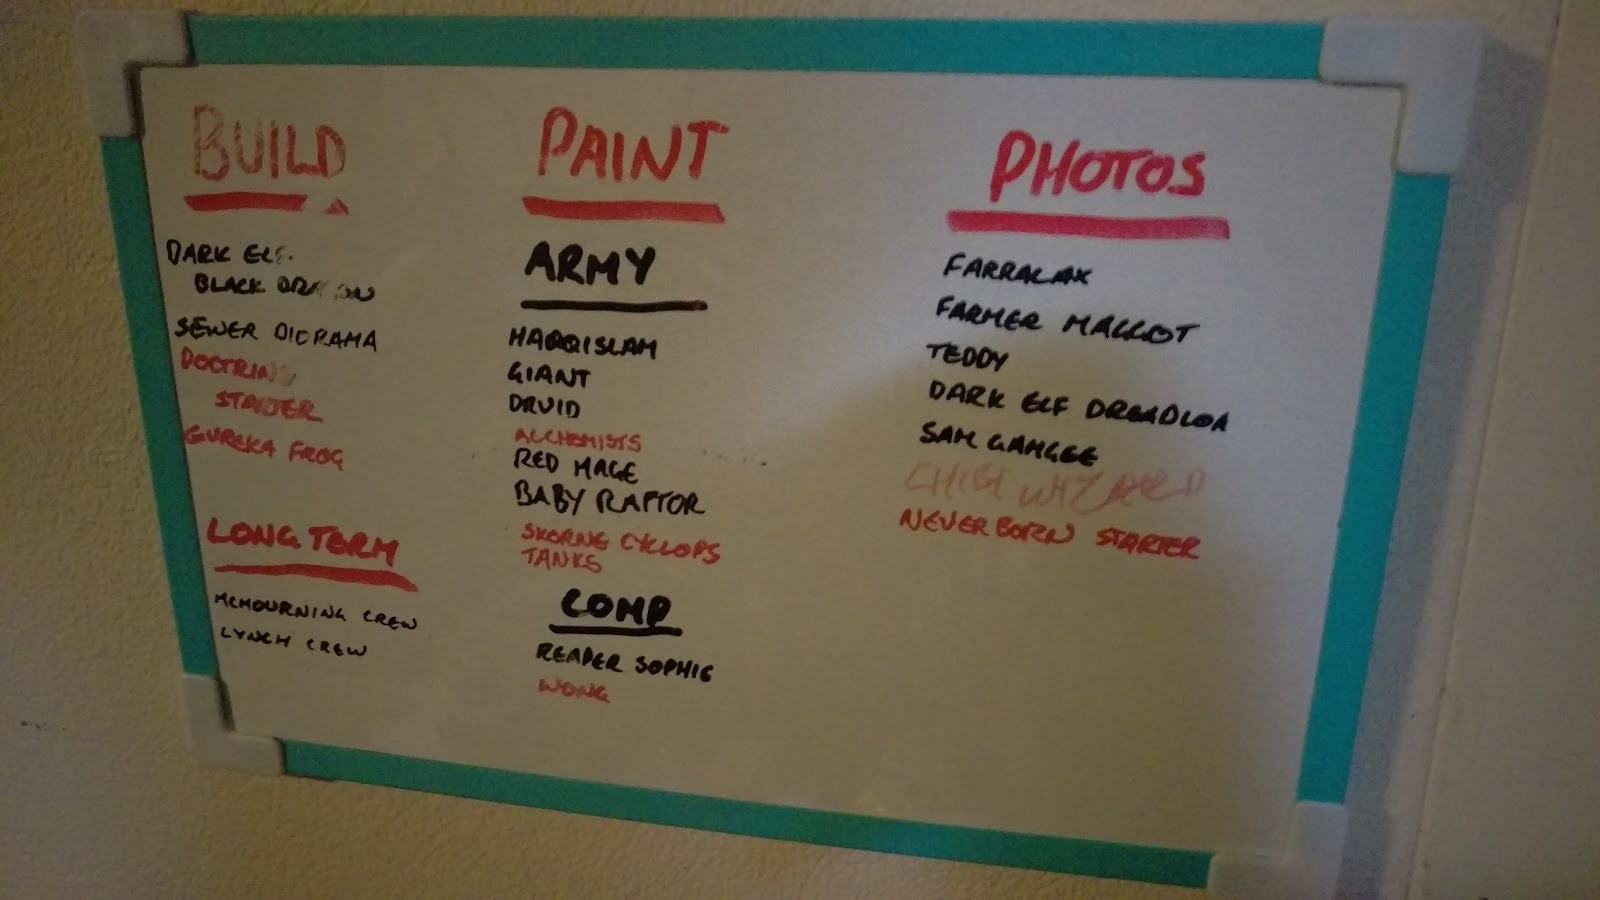 BUILD
DARK ELF
BLACK DRAGON
SEWER DIORAMA
DOCTRINE
STARTER
EUREKA FROG
LONG TERM
MCMOURNING CREW
LYNCH CREW
PAINT
ARMY
HAQQISLAM
GIANT
DRUID
ALCHEMISTS
RED MAGE
BABY RAPTOR
SKORNE CYCLOPS
TANKS
COMP
REAPER SOPHIE
WONG
PHOTOS
FARRALAK
FARMER MAGGOT
TEDDY
DARK ELF DREADLORD
SAM GAMGEE
CHIBI WIZARD
NEVERBORN STARTER